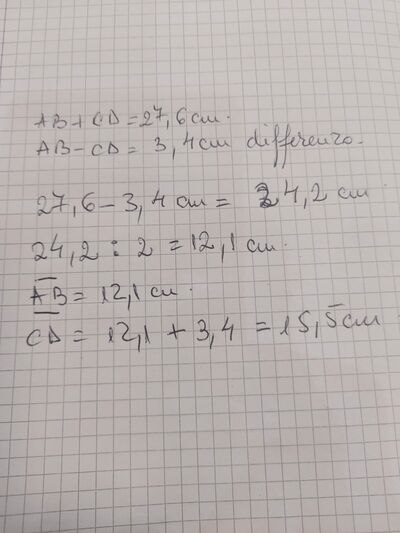 AB + CD = 27,6 cm.
AB - CD = 3,4 cm differenza.
27,6 - 3,4 cm = 24,2 cm
24,2 : 2 = 12,1 cm.
AB = 12,1 cm.
CD = 12,1 + 3,4 = 15,5 cm